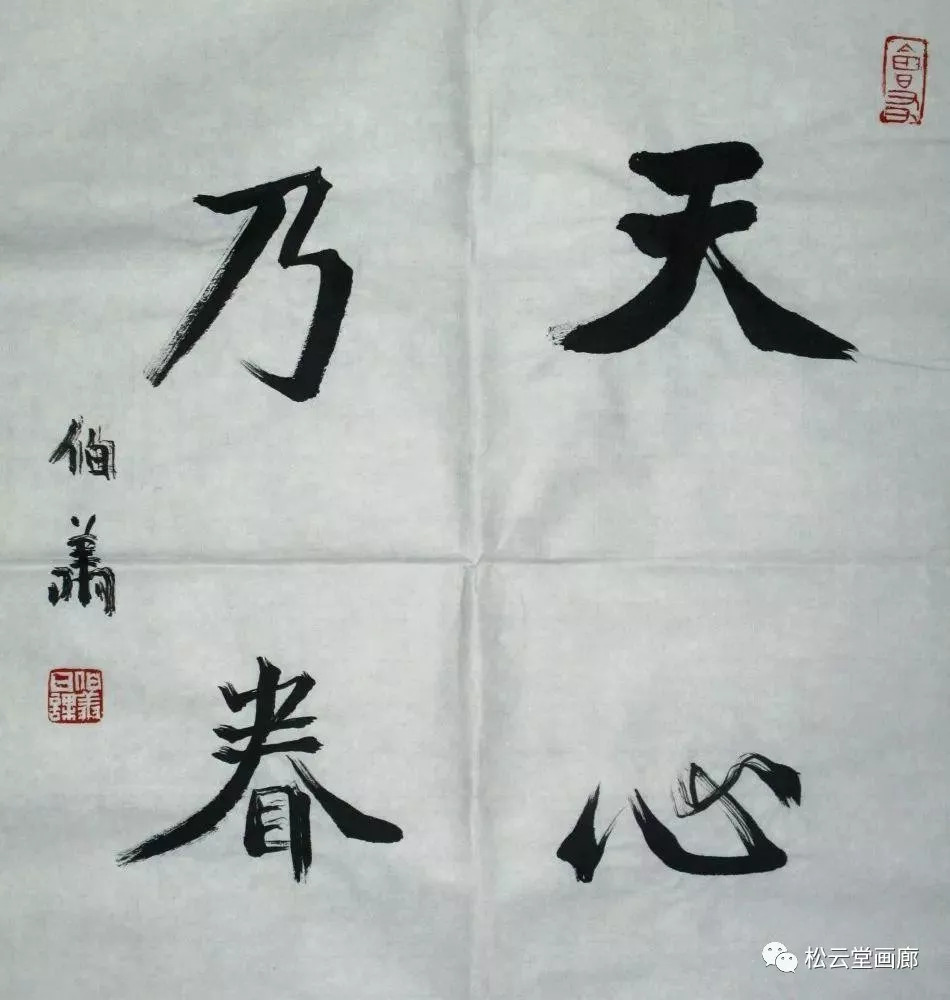 天心
乃眷
伯義
松云堂画廊